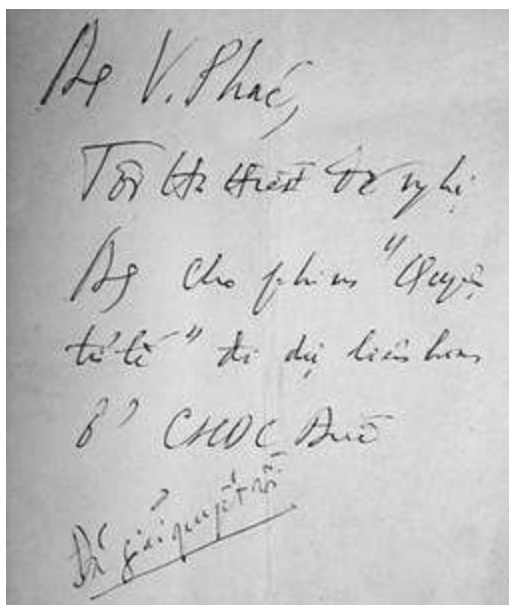 Ag V. Phác,
Tôi tha thiết đề nghị
Ag cho phim "Chuyện
tử tế" đi dự liên hoan
ở CHDC Đức
Đã giải quyết rồi